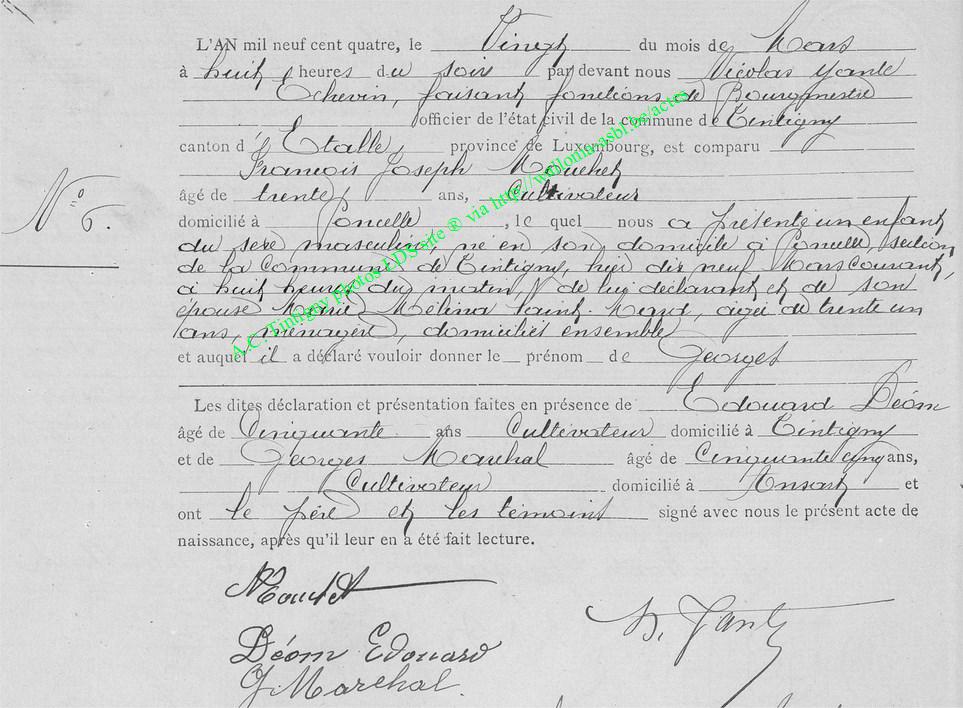 L'AN mil neuf cent quatre, le Vingt du mois de Mars
à huit heures du soir par devant nous Nicolas Yante
Echevin, faisant fonctions de Bourgmestre
officier de l'état civil de la commune de Tintigny
canton d'Etalle, province de Luxembourg, est comparu
François Joseph Mouchet
N° 6.
âgé de trente ans, Cultivateur
domicilié à Poncelle, le quel nous a présenté un enfant
du sexe masculin, né en son domicile à Poncelle section
de la Commune de Tintigny, hier dix neuf Mars courant,
à huit heures du matin, de lui déclarant et de son
épouse Marie Mélina Saint-Mard, agée de trente un
ans, ménagère, domiciliés ensemble
et auquel il a déclaré vouloir donner le prénom de Georges
Les dites déclaration et présentation faites en présence de Edouard Déom
âgé de Cinquante ans Cultivateur domicilié à Tintigny
et de Georges Maréchal âgé de Cinquante cinq ans,
Cultivateur domicilié à Ansart et
ont le père et les témoins signé avec nous le présent acte de
naissance, après qu'il leur en a été fait lecture.
Mouchet
N. Yante
Déom Edouard
G. Maréchal.
A.C. Tintigny Photos LDS site ® via http://wallonia-asbl.be/actes